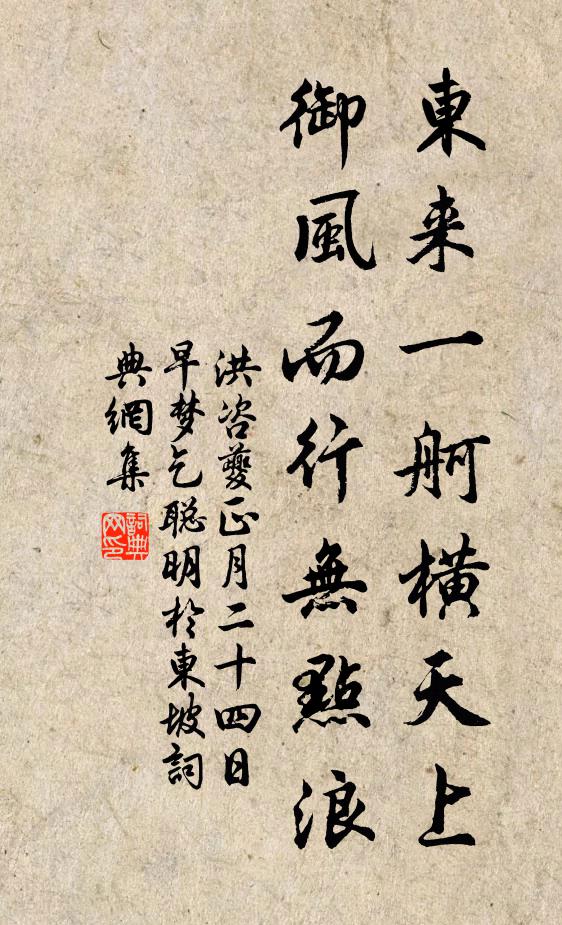 東来一舸橫天上
御風而行無點浪
洪咨夔正月二十四日
早梦乞聪明於東坡詞
典網集
詞典
网印